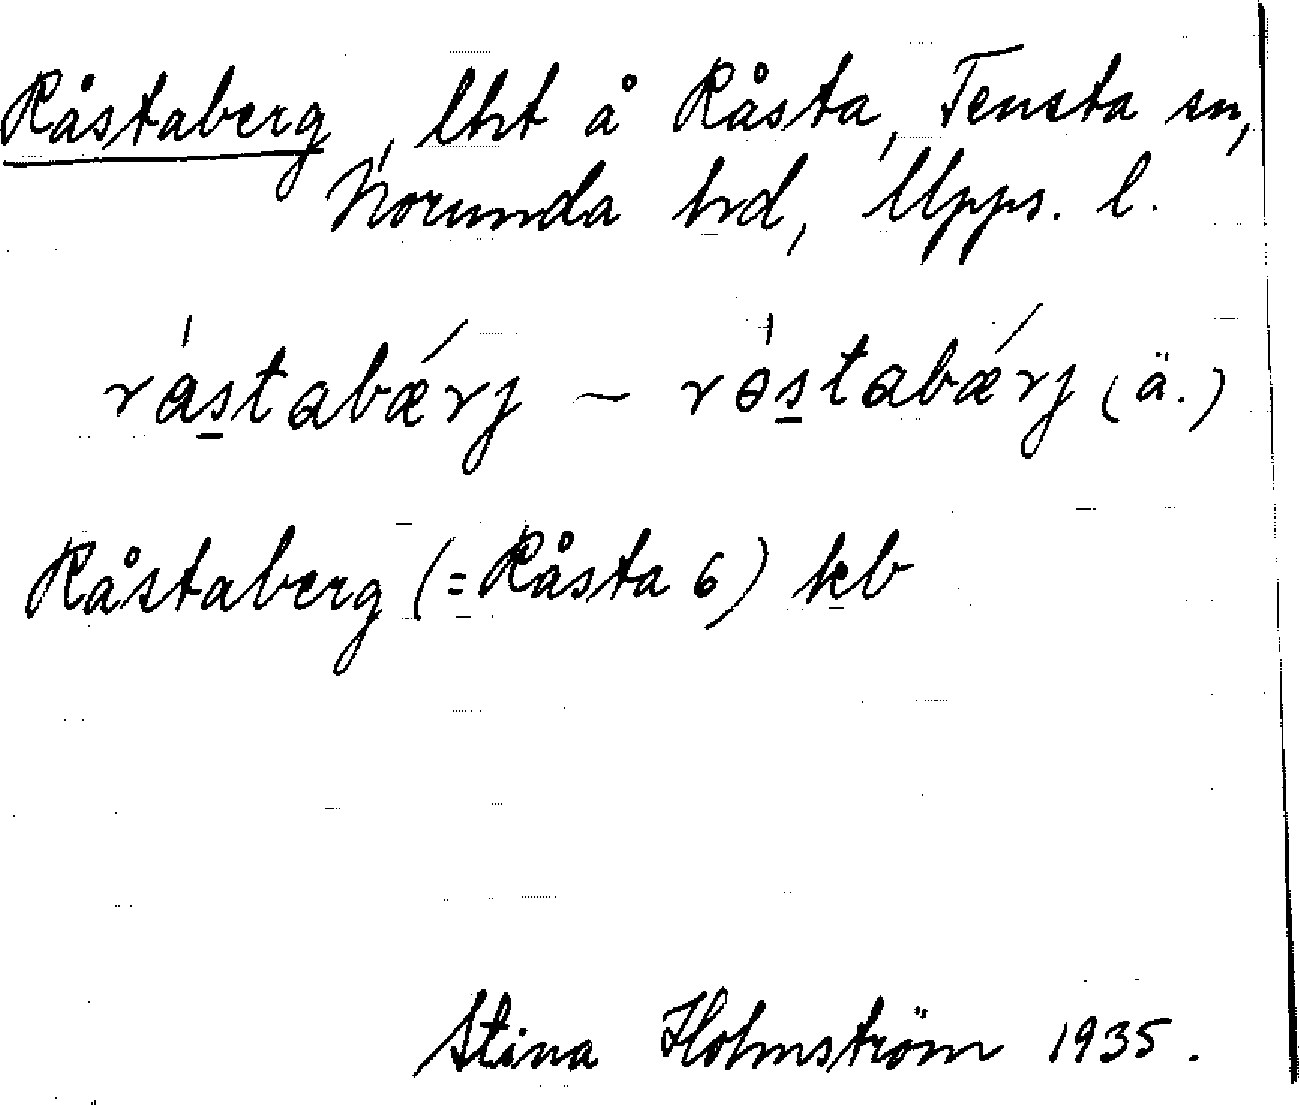 Råstaberg, lht å Råsta, Tensta sn,
Norunda hd, Upps. l.
råstabǽrj ~ rǝ́stabǽrj (ä.)
Råstaberg (= Råsta 6) kb
Stina Holmström 1935.